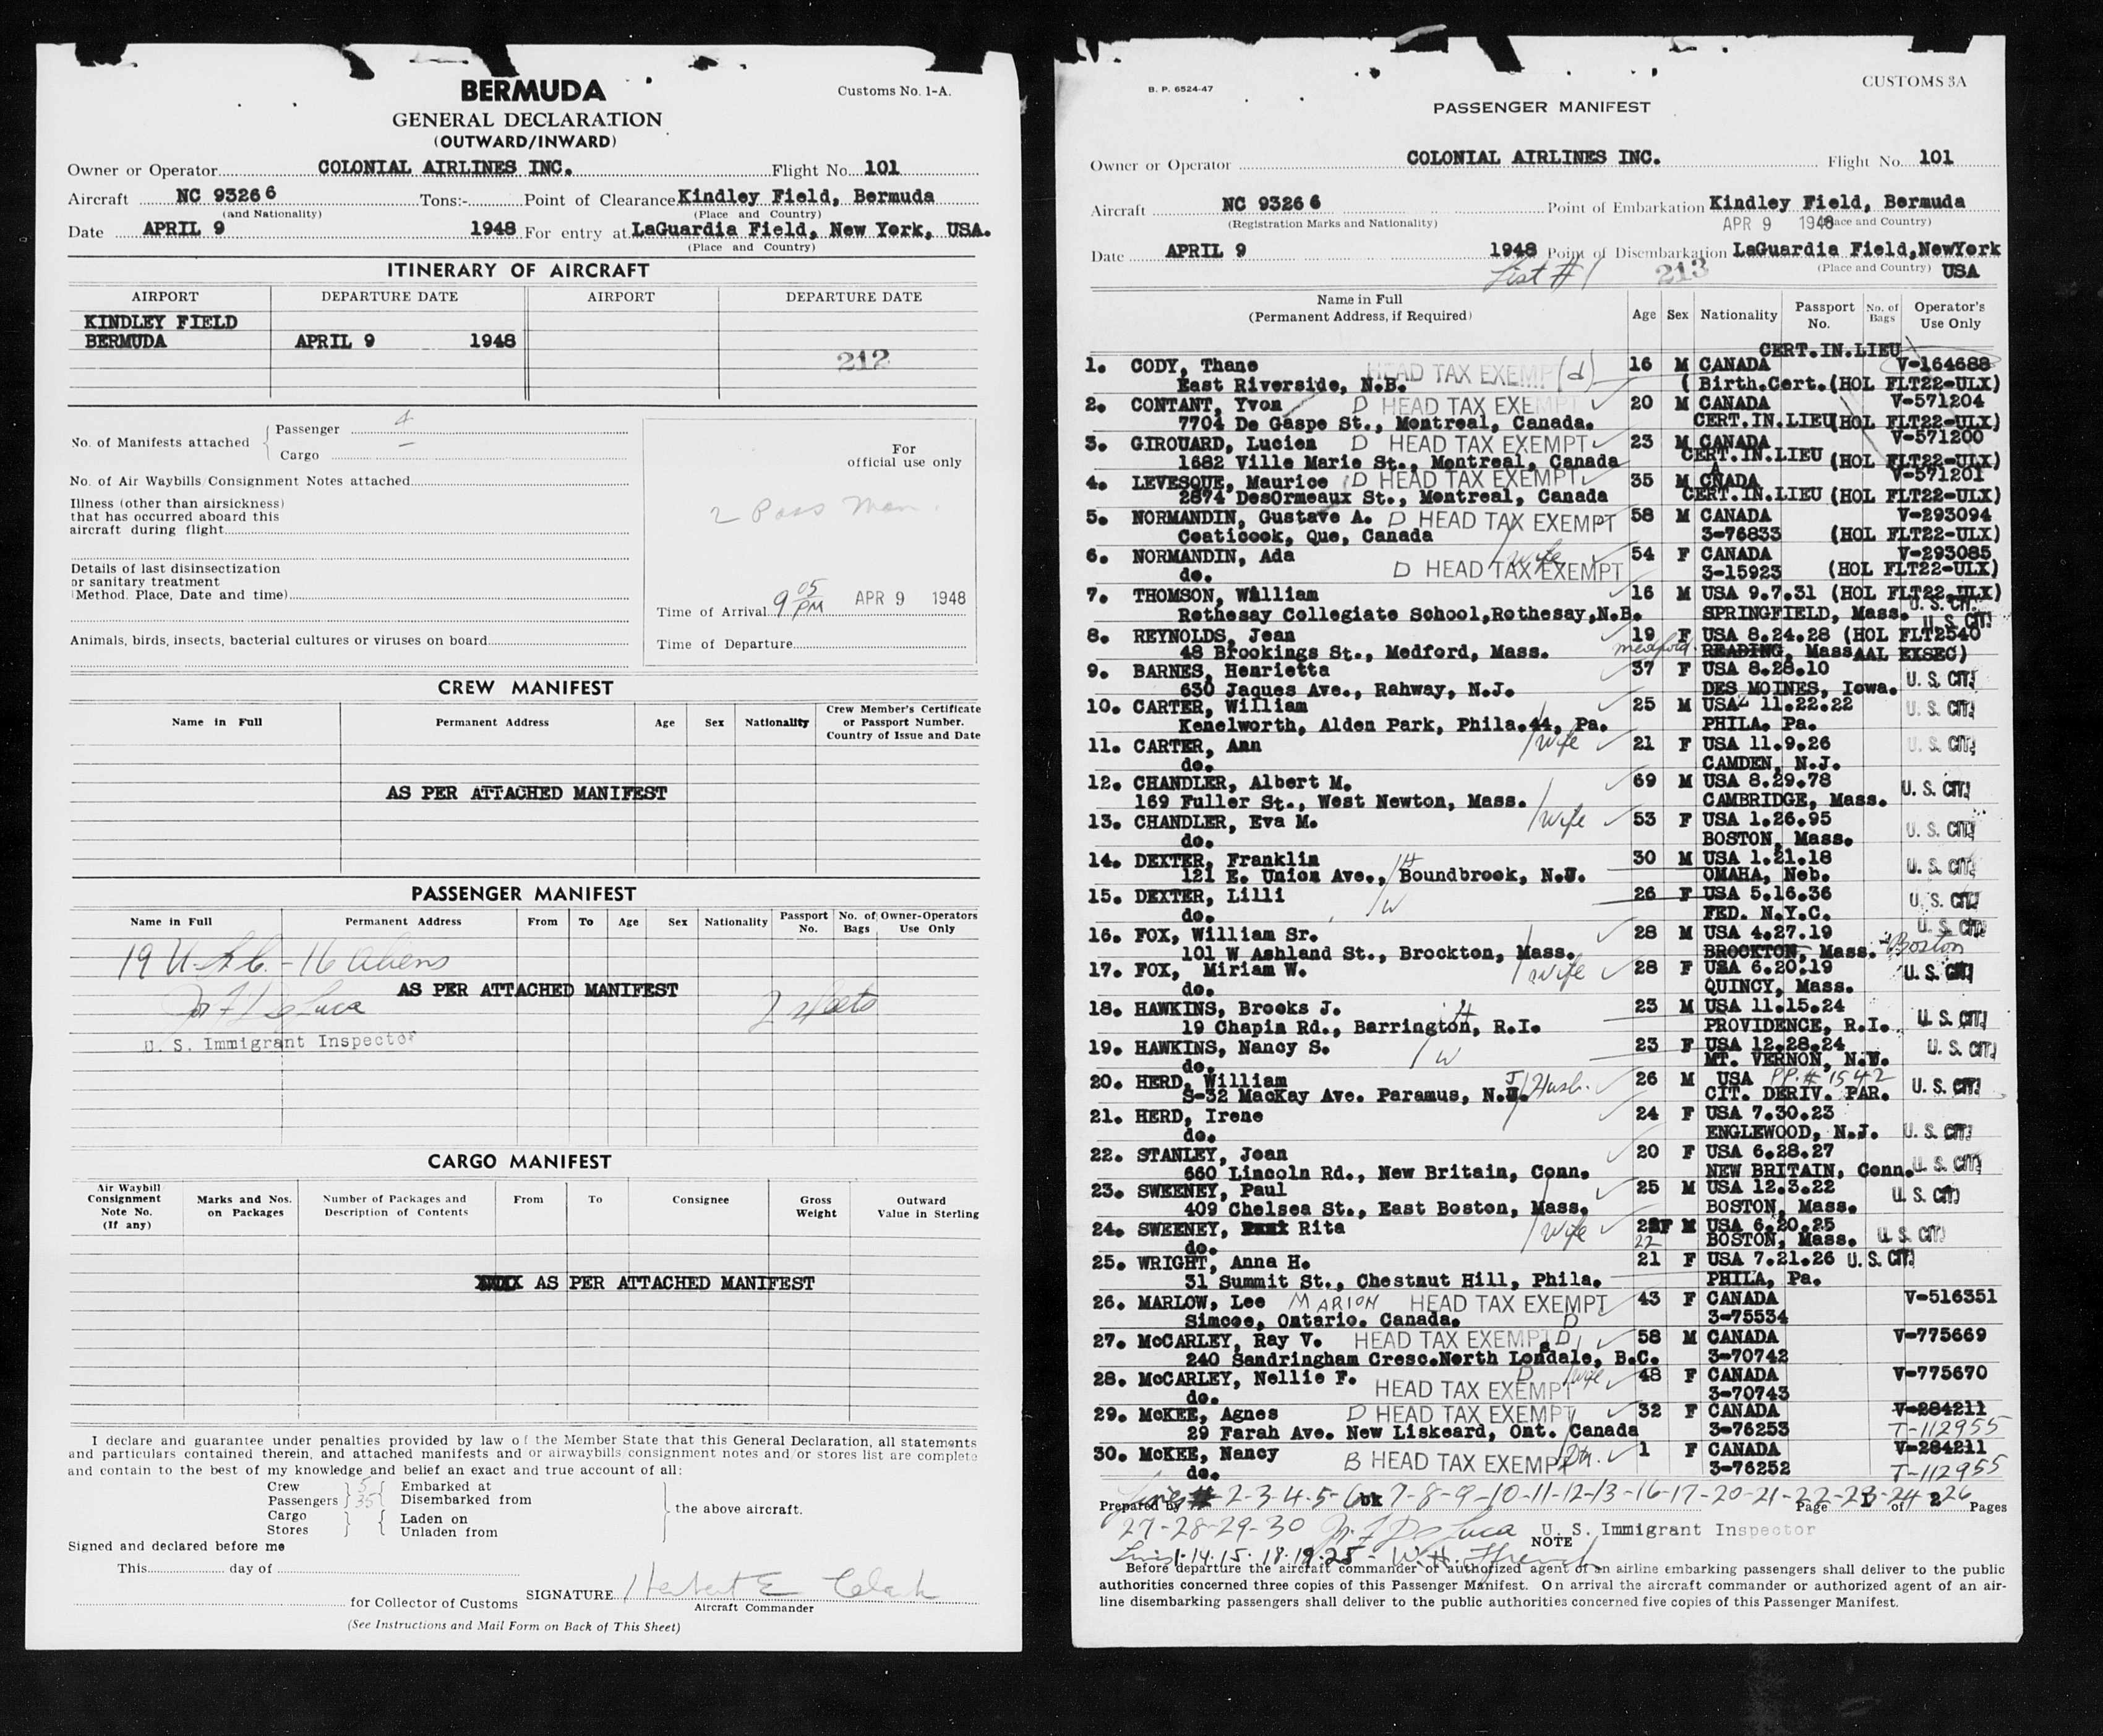 BERMUDA
Customs No. 1-A.
GENERAL DECLARATION
(OUTWARD/INWARD)
Owner or Operator COLONIAL AIRLINES INC. Flight No. 101
Aircraft NC 93266 Tons:- Point of Clearance Kindley Field, Bermuda
(and Nationality) (Place and Country)
Date APRIL 9 1948 For entry at LaGuardia Field, New York, USA.
(Place and Country)
ITINERARY OF AIRCRAFT
AIRPORT DEPARTURE DATE AIRPORT DEPARTURE DATE
KINDLEY FIELD
BERMUDA APRIL 9 1948
212
No. of Manifests attached
Passenger 4
Cargo —
For
official use only
No. of Air Waybills/Consignment Notes attached
Illness (other than airsickness)
that has occurred aboard this
aircraft during flight
2 Pass Man.
Details of last disinsectization
or sanitary treatment
(Method. Place, Date and time)
Time of Arrival 9 05 PM APR 9 1948
Animals, birds, insects, bacterial cultures or viruses on board
Time of Departure
CREW MANIFEST
Name in Full Permanent Address Age Sex Nationality Crew Member's Certificate
or Passport Number.
Country of Issue and Date
AS PER ATTACHED MANIFEST
PASSENGER MANIFEST
Name in Full Permanent Address From To Age Sex Nationality Passport No. No. of Bags Owner-Operators Use Only
19 U.S.C. - 16 Aliens
AS PER ATTACHED MANIFEST
De Luca 2 sheets
U. S. Immigrant Inspector
CARGO MANIFEST
Air Waybill Consignment Note No. (If any) Marks and Nos. on Packages Number of Packages and Description of Contents From To Consignee Gross Weight Outward Value in Sterling
AS PER ATTACHED MANIFEST
I declare and guarantee under penalties provided by law of the Member State that this General Declaration, all statements
and particulars contained therein, and attached manifests and or airwaybills/consignment notes and/or stores list are complete
and contain to the best of my knowledge and belief an exact and true account of all:
Crew 5 Embarked at
Passengers 35 Disembarked from
the above aircraft.
Cargo Laden on
Stores Unladen from
Signed and declared before me
This day of
SIGNATURE Herbert E Clark
for Collector of Customs
Aircraft Commander
(See Instructions and Mail Form on Back of This Sheet)
B. P. 6524-47
CUSTOMS 3A
PASSENGER MANIFEST
Owner or Operator COLONIAL AIRLINES INC. Flight No. 101
Aircraft NC 93266 Point of Embarkation Kindley Field, Bermuda
(Registration Marks and Nationality) APR 9 1948 (Place and Country)
Date APRIL 9 1948 Point of Disembarkation LaGuardia Field, NewYork
(Place and Country) USA
List #1 213
Name in Full
(Permanent Address, if Required) Age Sex Nationality Passport No. No. of Bags Operator's Use Only
CERT.IN.LIEU
1. CODY, Thane HEAD TAX EXEMP (d) 16 M CANADA V-164688
East Riverside, N.B. ( Birth.Cert.(HOL FLT22-ULX)
2. CONTANT, Yvon D HEAD TAX EXEMPT 20 M CANADA V-571204
7704 De Gaspe St., Montreal, Canada. CERT.IN.LIEU (HOL FLT22-ULX)
3. GIROUARD, Lucien D HEAD TAX EXEMPT 23 M CANADA V-571200
1682 Ville Marie St., Montreal, Canada CERT.IN.LIEU (HOL FLT22-ULX)
4. LEVESQUE, Maurice D HEAD TAX EXEMPT 35 M CANADA V-571201
2874 DesOrmeaux St., Montreal, Canada CERT.IN.LIEU (HOL FLT22-ULX)
5. NORMANDIN, Gustave A. D HEAD TAX EXEMPT 58 M CANADA V-293094
Coaticook, Que, Canada 3-76833 (HOL FLT22-ULX)
6. NORMANDIN, Ada wife 54 F CANADA V-293085
do. D HEAD TAX EXEMPT 3-15923 (HOL FLT22-ULX)
7. THOMSON, William 16 M USA 9.7.31 (HOL FLT22.ULX)
Rothesay Collegiate School,Rothesay,N.B. SPRINGFIELD, Mass. U. S. CIT.
8. REYNOLDS, Jean 19 F USA 8.24.28 (HOL FLT2540 U. S. CIT.
48 Brookings St., Medford, Mass. Medford READING, Mass AAL EXSEC)
9. BARNES, Henrietta 37 F USA 8.28.10
630 Jaques Ave., Rahway, N.J. DES MOINES, Iowa. U. S. CIT.
10. CARTER, William 25 M USA 11.22.22 U. S. CIT.
Kenelworth, Alden Park, Phila.44, Pa. PHILA, Pa.
11. CARTER, Ann wife 21 F USA 11.9.26 U. S. CIT.
do. CAMDEN, N.J.
12. CHANDLER, Albert M. 69 M USA 8.29.78 U. S. CIT.
169 Fuller St., West Newton, Mass. CAMBRIDGE, Mass.
13. CHANDLER, Eva M. wife 53 F USA 1.26.95 U. S. CIT.
do. BOSTON, Mass.
14. DEXTER, Franklin H 30 M USA 1.21.18 U. S. CIT.
121 E. Union Ave., Boundbrook, N.J. OMAHA, Neb.
15. DEXTER, Lilli W 26 F USA 5.16.36 U. S. CIT.
do. FED. N.Y.C.
16. FOX, William Sr. 28 M USA 4.27.19 U. S. CIT.
101 W Ashland St., Brockton, Mass. BROCKTON, Mass. Boston
17. FOX, Miriam W. wife 28 F USA 6.20.19 U. S. CIT.
do. QUINCY, Mass.
18. HAWKINS, Brooks J. H 23 M USA 11.15.24
19 Chapin Rd., Barrington, R.I. PROVIDENCE, R.I. U. S. CIT.
19. HAWKINS, Nancy S. W 23 F USA 12.28.24 U. S. CIT.
do. MT. VERNON, N.Y.
20. HERD, William Husb. 26 M USA PP.# 1542
S-32 MacKay Ave. Paramus, N.J. CIT. DERIV. PAR. U. S. CIT.
21. HERD, Irene 24 F USA 7.30.23
do. ENGLEWOOD, N.J. U. S. CIT.
22. STANLEY, Joan 20 F USA 6.28.27
660 Lincoln Rd., New Britain, Conn. NEW BRITAIN, Conn. U. S. CIT.
23. SWEENEY, Paul 25 M USA 12.3.22 U. S. CIT.
409 Chelsea St., East Boston, Mass. BOSTON, Mass.
24. SWEENEY, Rita wife 22 F M USA 6.20.25
do. BOSTON, Mass. U. S. CIT.
25. WRIGHT, Anna H. 21 F USA 7.21.26 U. S. CIT.
31 Summit St., Chestnut Hill, Phila. PHILA, Pa.
26. MARLOW, Lee MARION HEAD TAX EXEMPT 43 F CANADA V-516351
Simcoe, Ontario. Canada. D 3-75534
27. McCARLEY, Ray V. HEAD TAX EXEMPT D 58 M CANADA V-775669
240 Sandringham Cresc.North Lonsdale, B.C. 3-70742
28. McCARLEY, Nellie F. D wife 48 F CANADA V-775670
do. HEAD TAX EXEMPT 3-70743
29. McKEE, Agnes D HEAD TAX EXEMPT 32 F CANADA V-284211
29 Farah Ave. New Liskeard, Ont. Canada 3-76253 T-112955
30. McKEE, Nancy B HEAD TAX EXEMPT Da. 1 F CANADA V-284211
do. 3-76252 T-112955
Lines 2-3-4-5-6-7-8-9-10-11-12-13-16-17-20-21-22-23-24-26
Prepared by bk Page 1 of 2 Pages
27-28-29-30 De Luca U. S. Immigrant Inspector
NOTE
Lines 1-14-15-18-19-25- W.H. Ffrench
Before departure the aircraft commander or authorized agent of an airline embarking passengers shall deliver to the public
authorities concerned three copies of this Passenger Manifest. On arrival the aircraft commander or authorized agent of an air-
line disembarking passengers shall deliver to the public authorities concerned five copies of this Passenger Manifest.